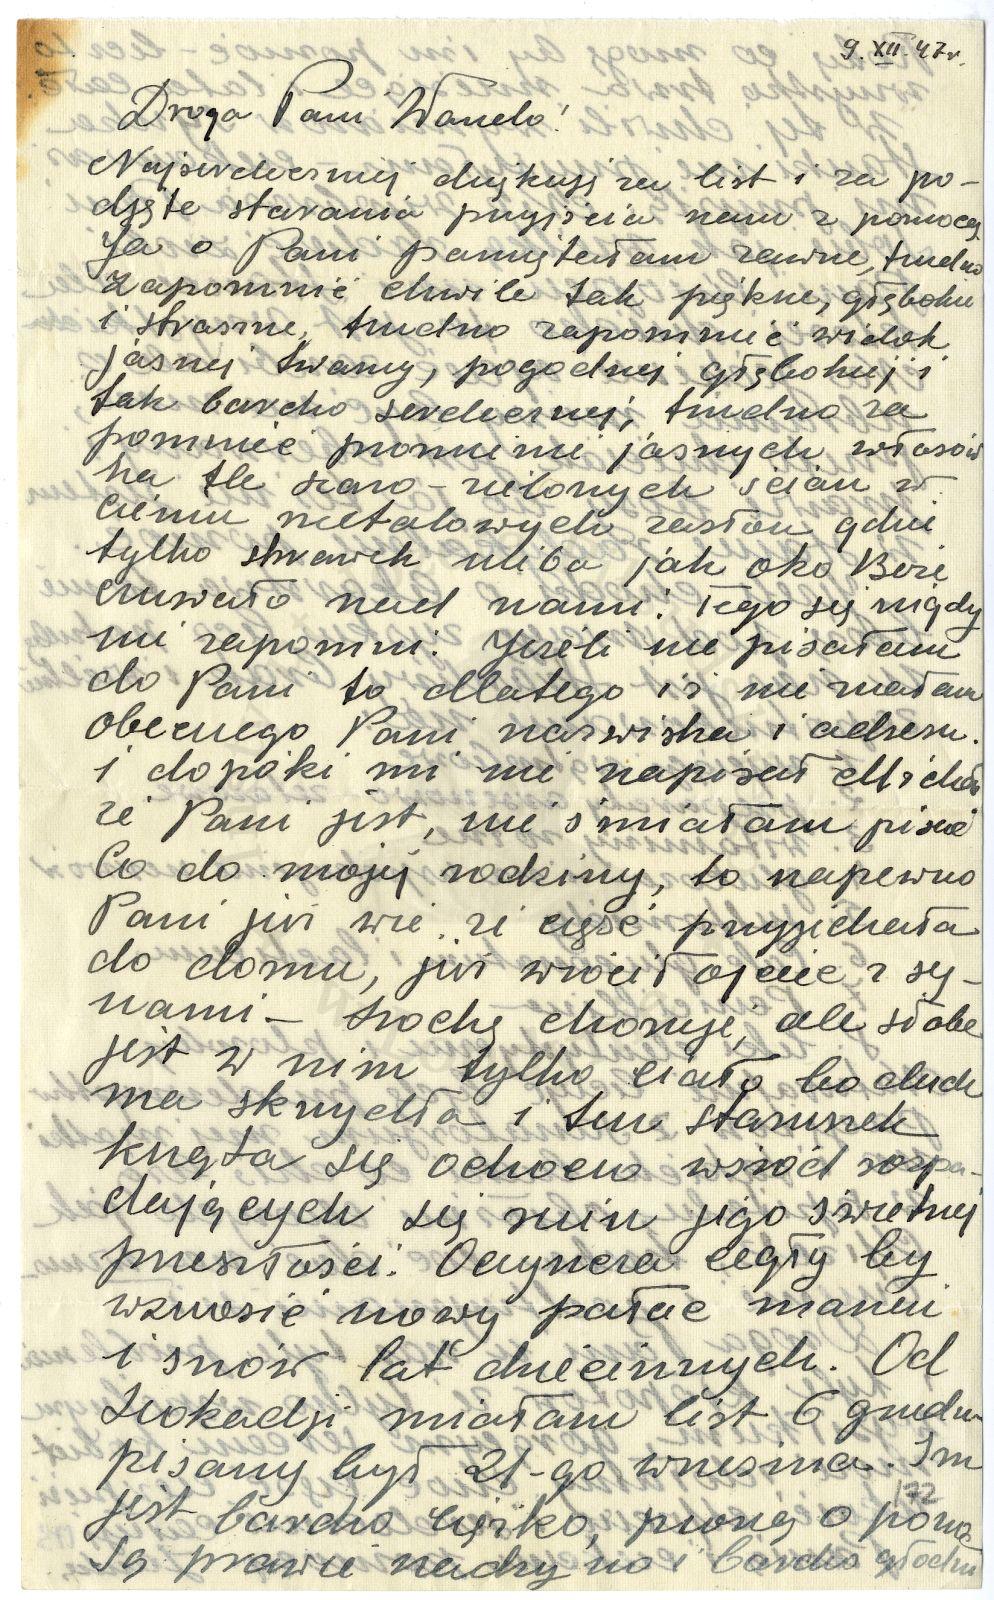 9. XII. 47 r.
Droga Pani Wando!
Najserdeczniej dziękuję za list i za po-
djęte starania przyjścia nam z pomocą.
Ja o Pani pamiętałam zawsze, trudno
zapomnieć chwile tak piękne, głębokie
i straszne, trudno zapomnieć widok
jasnej twarzy, pogodnej głębokiej i
tak bardzo serdecznej, trudno za
pomnieć promieni jasnych włosów
na tle szaro-zielonych ścian w
cieniu metalowych zasłon gdzie
tylko skrawek nieba jak oko Boże
czuwało nad nami. Tego się nigdy
nie zapomni. Jeżeli nie pisałam
do Pani to dlatego iż nie znałam
obecnego Pani nazwiska i adresu.
i dopóki mi nie napisał Michał
że Pani jest, nie śmiałam pisać
Co do mojej rodziny, to napewno
Pani już wie że część przyjechała
do domu, już wrócił ojciec z sy-
nami - trochę choruje, ale słabe
jest w nim tylko ciało bo duch
ma skrzydła i ten staruszek
krząta się ochoczo wśród rozpa-
dających się ruin jego świetnej
przeszłości. Oczyszcza cegły by
wznosić nowy pałac marzeń
i snów lat dziecinnych. Od
Leokadji miałam list 6 grudn
pisany był 21-go września. Im
jest bardzo ciężko, proszą o pomoc
172
Są prawie nadzy no i bardzo głodni